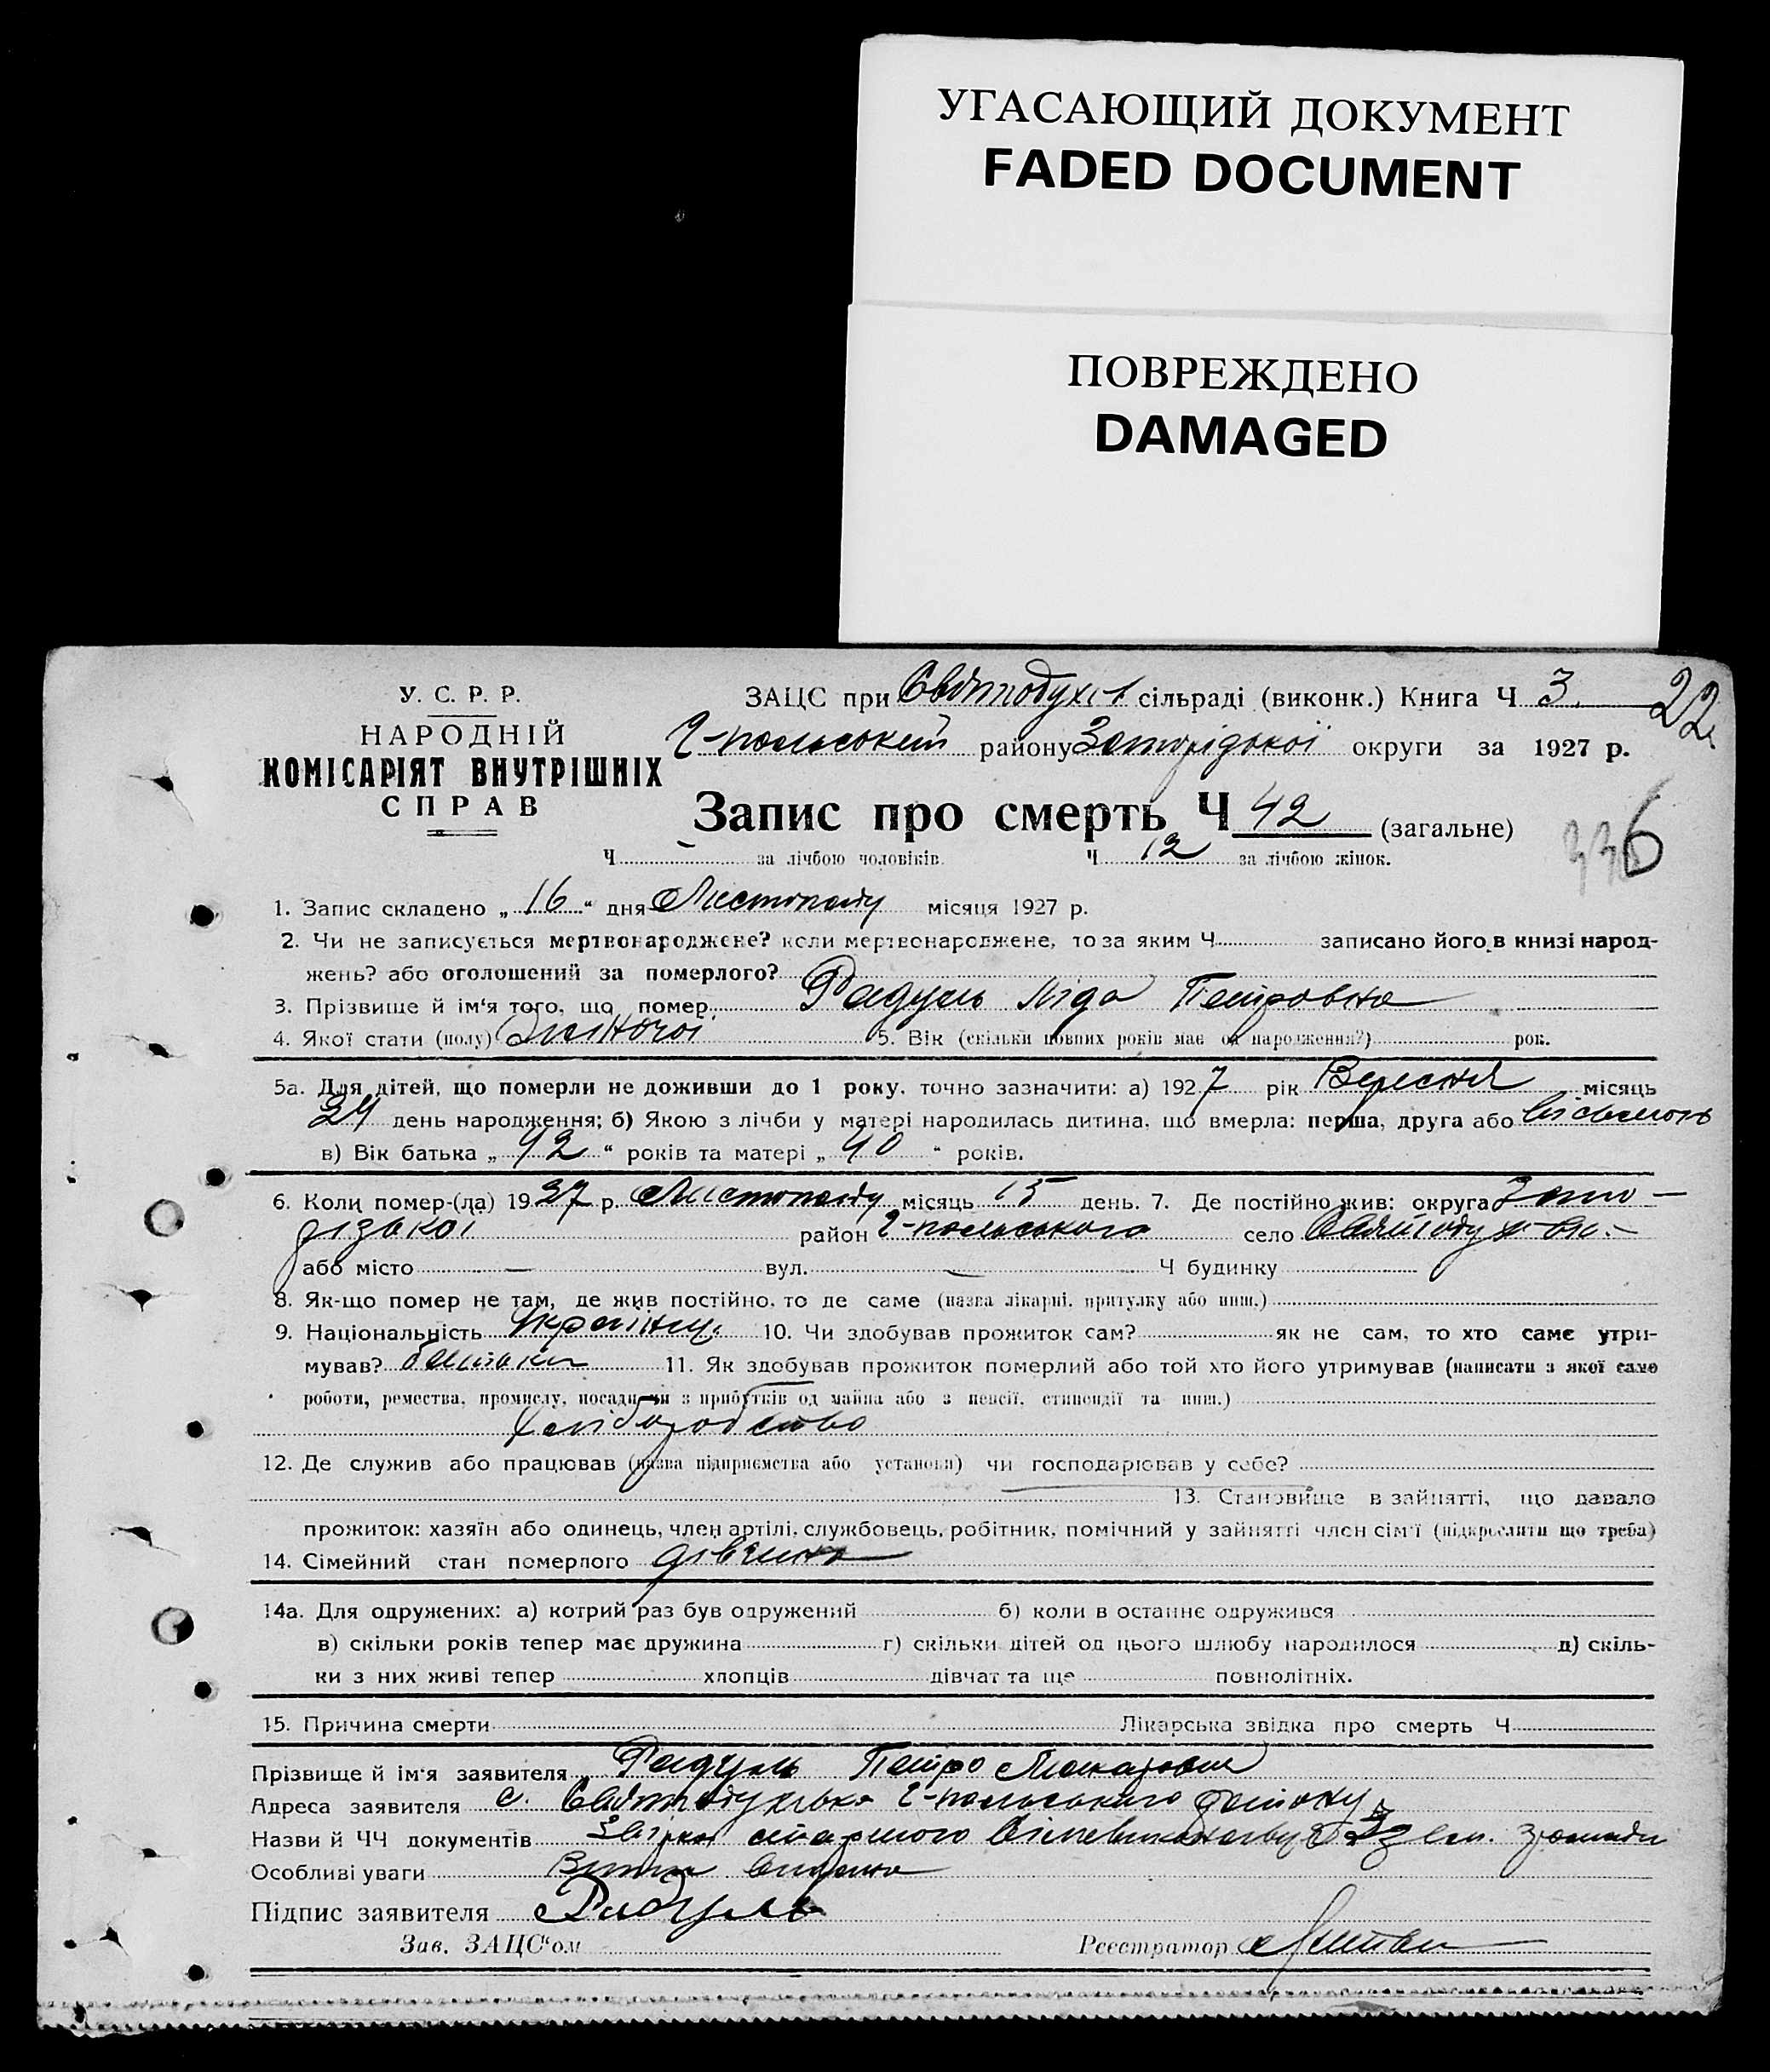 УГАСАЮЩИЙ ДОКУМЕНТ
FADED DOCUMENT
ПОВРЕЖДЕНО
DAMAGED
У. С. Р. Р.
НАРОДНІЙ
КОМІСАРІЯТ ВНУТРІШНІХ
СПРАВ
ЗАЦС при Святодухів. сільраді (виконк.) Книга Ч 3. 22
Г-польський району Запорізької округи за 1927 р.
Запис про смерть Ч 42 (загальне)
336
Ч - за лічбою чоловіків. Ч 12 за лічбою жінок.
1. Запис складено „ 16 “ дня Листопаду місяця 1927 р.
2. Чи не записується мертвонароджене? коли мертвонароджене, то за яким Ч записано його в книзі народ-
жень? або оголошений за померлого?
3. Прізвище й ім'я того, що помер Радуль Ліда Петровна
4. Якої стати (полу) Жіночої 5. Вік (скільки повних років має од народження?) рок.
5а. Для дітей, що померли не доживши до 1 року, точно зазначити: а) 1927 рік Вересня місяць
24 день народження; б) Якою з лічби у матері народилась дитина, що вмерла: перша, друга або
в) Вік батька „ 42 “ років та матері „ 40 “ років.
6. Коли помер-(ла) 1927 р. Листопаду місяць 15 день. 7. Де постійно жив: округа Запо-
різької район Г-польського село Святодухівк.-
або місто — вул. — Ч будинку
8. Як-що помер не там, де жив постійно, то де саме (назва лікарні, притулку або инш.)
9. Національність Україниц. 10. Чи здобував прожиток сам? як не сам, то хто саме утри-
мував? батьки 11. Як здобував прожиток померлий або той хто його утримував (написати з якої само
роботи, ремества, промислу, посади чи з прибутків од майна або з пенсії, стипендії та инш.)
Хліборобство
12. Де служив або працював (назва підприємства або установи) чи господарював у себе?
13. Становище в зайнятті, що давало
прожиток: хазяїн або одинець, член артілі, службовець, робітник, помічний у зайнятті член сім'ї (підкреслити що треба)
14. Сімейний стан померлого дівчина
14а. Для одружених: а) котрий раз був одружений б) коли в останнє одружився
в) скільки років тепер має дружина г) скільки дітей од цього шлюбу народилося д) скіль-
ки з них живі тепер хлопців дівчат та ще повнолітніх.
15. Причина смерти Лікарська звідка про смерть Ч
Прізвище й ім'я заявителя Радуль Петро Макарович
Адреса заявителя с. Святодухівка Г-польського району
Назви й ЧЧ документів
Особливі уваги
Підпис заявителя Радуль
Зав. ЗАЦС'ом Реєстратор